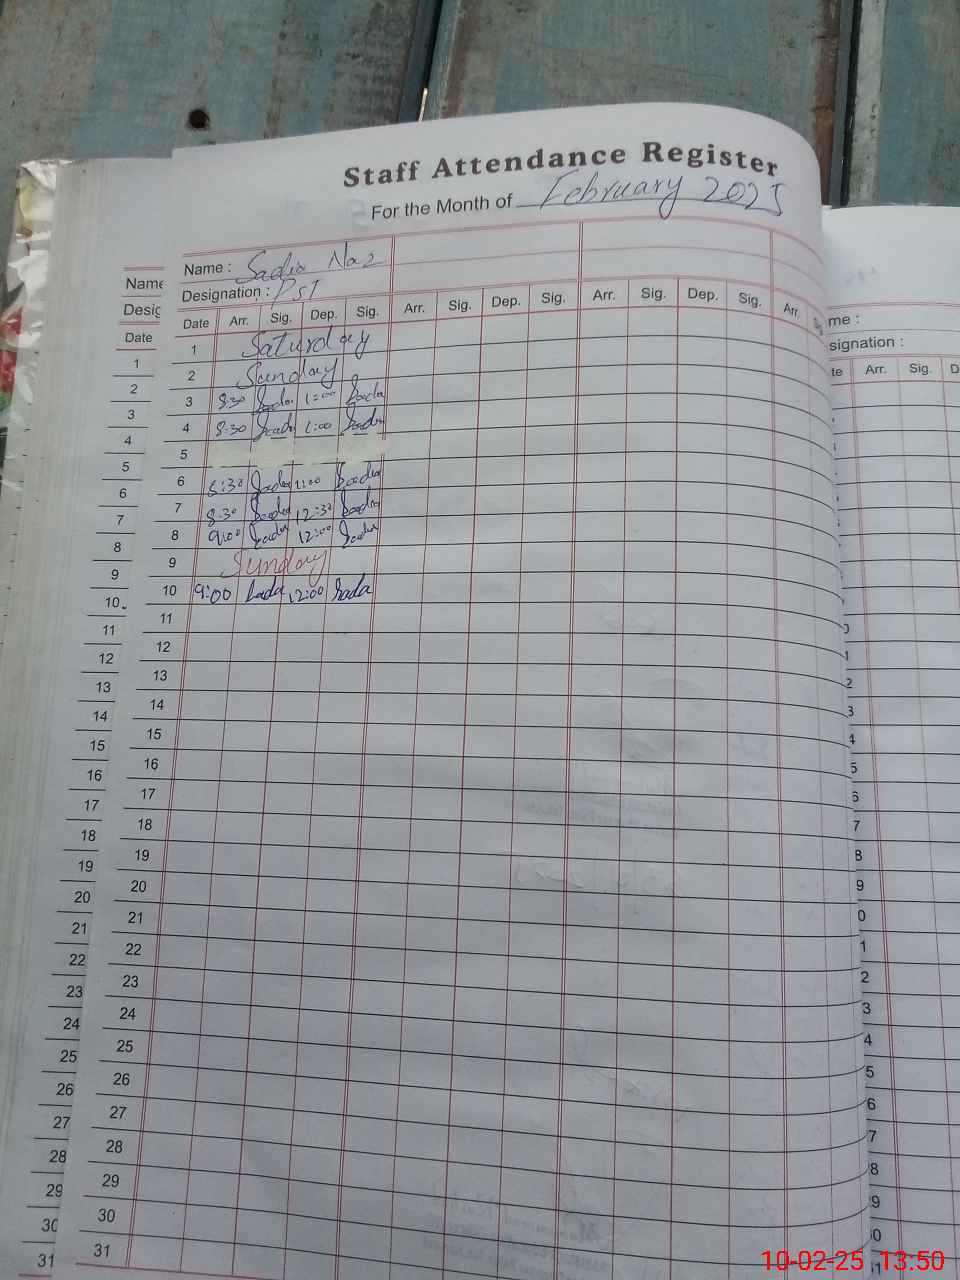 Staff Attendance Register
For the Month of February 2025
Name : Sadia Naz
Designation : PST
Date Arr. Sig. Dep. Sig. Arr. Sig. Dep. Sig. Arr. Sig. Dep. Sig. Arr.
1 Saturday
2 Sunday
3 8:30 Sadia 1:00 Sadia
4 8:30 Sadia 1:00 Sadia
5
6 8:30 Sadia 1:00 Sadia
7 8:30 Sadia 12:30 Sadia
8 9:00 Sadia 12:00 Sadia
9 Sunday
10 9:00 Sada 12:00 Sada
11
12
13
14
15
16
17
18
19
20
21
22
23
24
25
26
27
28
29
30
31
Name
Desig
Date
1
2
3
4
5
6
7
8
9
10
11
12
13
14
15
16
17
18
19
20
21
22
23
24
25
26
27
28
29
30
31
me :
signation :
te Arr. Sig. D
10-02-25 13:50